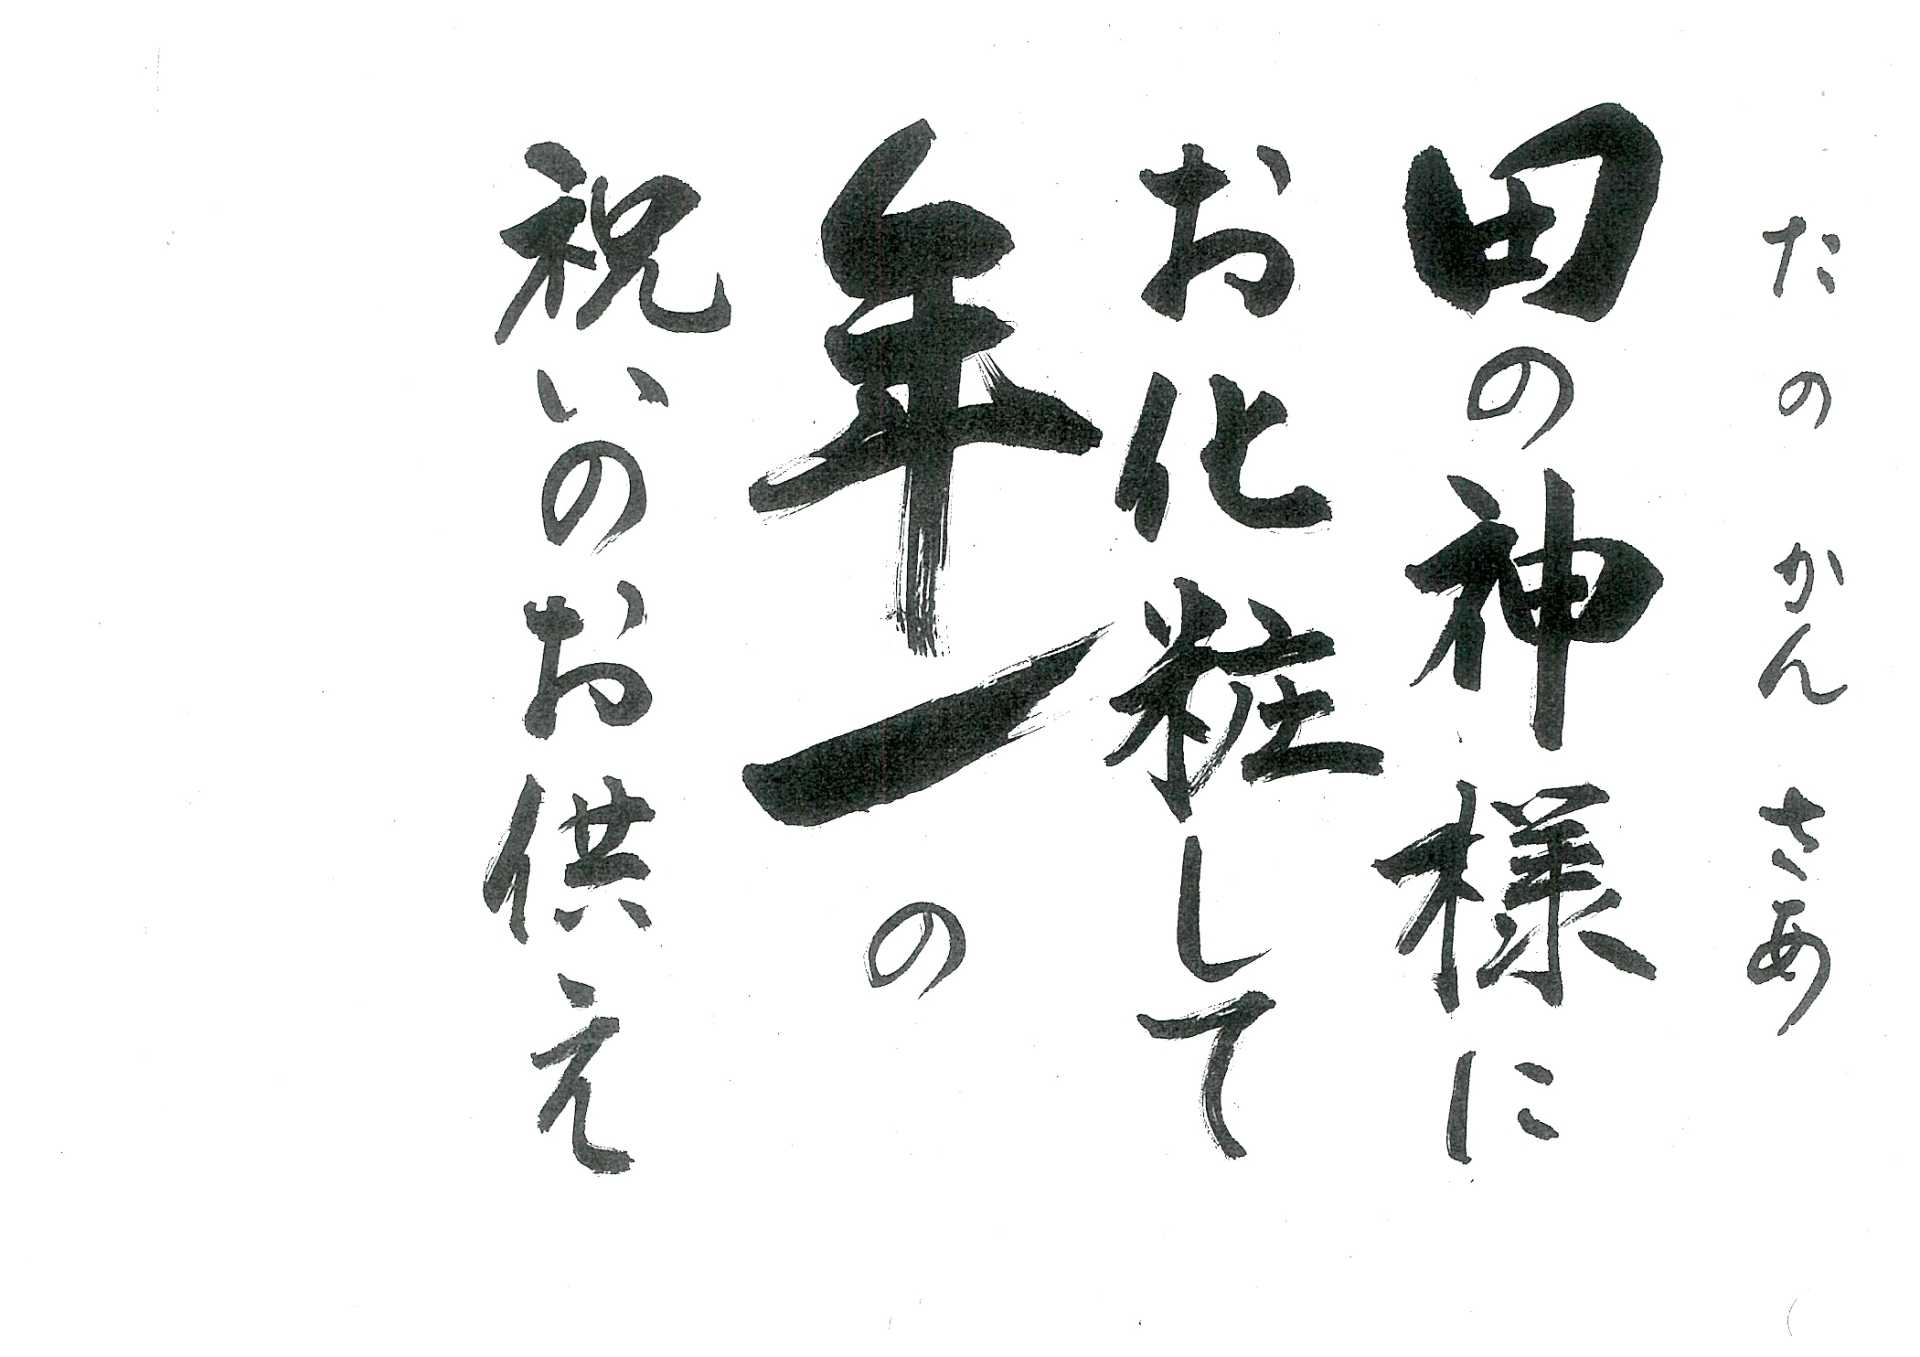 たのかんさあ
田の神様に
お化粧して
年一の
祝いのお供え